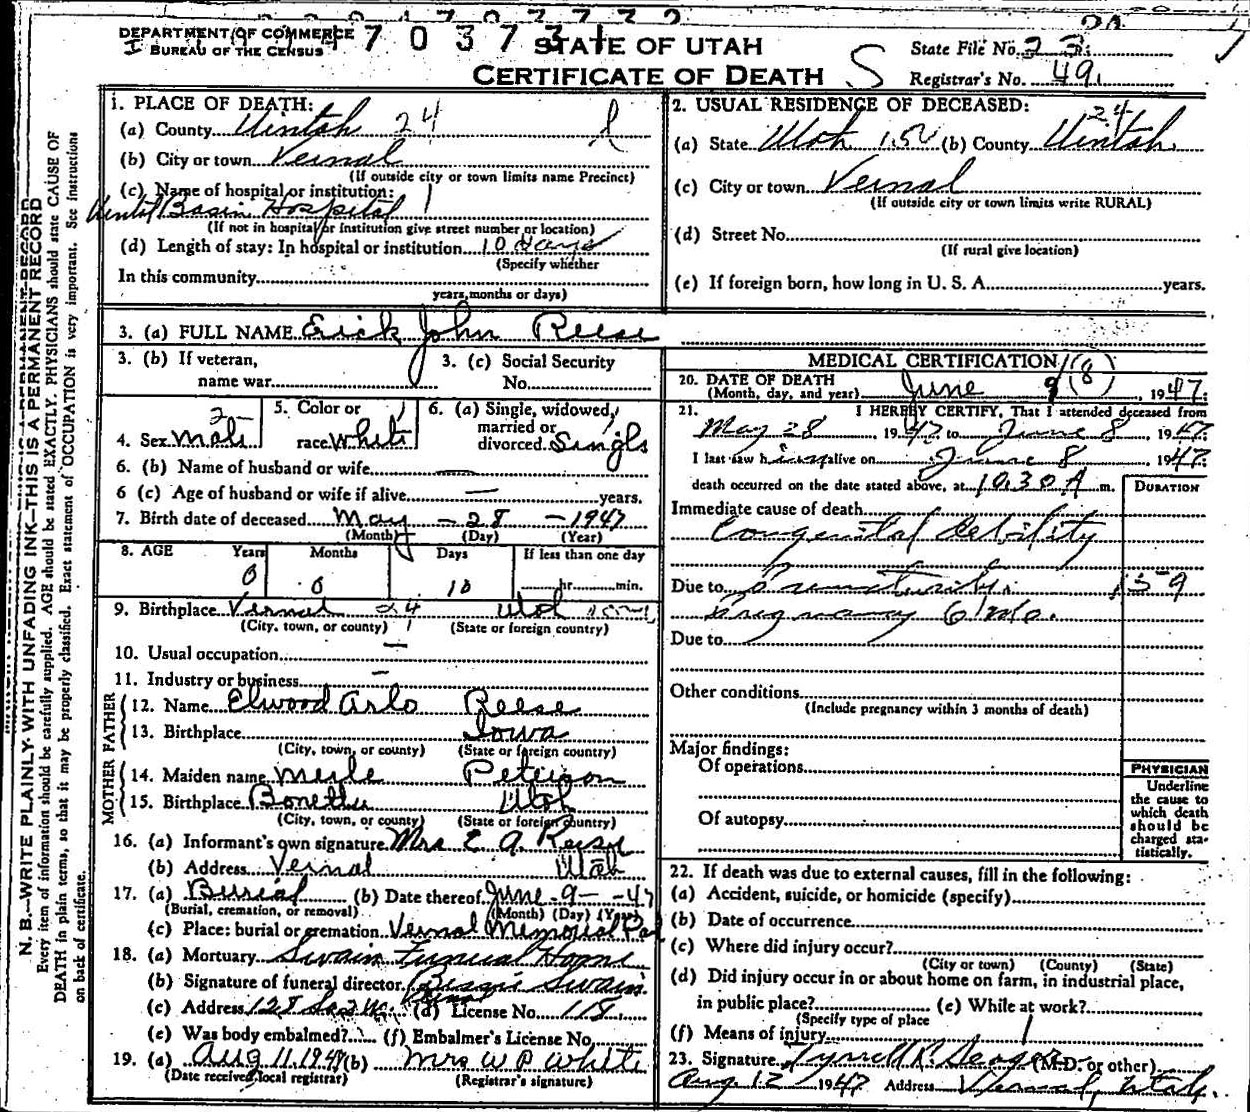 DEPARTMENT OF COMMERCE
BUREAU OF THE CENSUS
7 0 3 7 3 1
STATE OF UTAH
CERTIFICATE OF DEATH
S
State File No. 23
Registrar's No. 49.
1. PLACE OF DEATH:
(a) County Uintah 24
(b) City or town Vernal
(If outside city or town limits name Precinct)
(c) Name of hospital or institution:
Uintah Basin Hospital 1
(If not in hospital or institution give street number or location)
(d) Length of stay: In hospital or institution 10 days
(Specify whether
In this community
years, months or days)
2. USUAL RESIDENCE OF DECEASED:
24
(a) State Utah (b) County Uintah
(c) City or town Vernal
(If outside city or town limits write RURAL)
(d) Street No.
(If rural give location)
(e) If foreign born, how long in U. S. A. years.
3. (a) FULL NAME Erick John Reese
3. (b) If veteran,
name war
3. (c) Social Security
No.
4. Sex Male
5. Color or
race White
6. (a) Single, widowed,
married or
divorced Single
6. (b) Name of husband or wife —
6 (c) Age of husband or wife if alive — years.
7. Birth date of deceased May - 28 - 1947
(Month) (Day) (Year)
8. AGE Years Months Days If less than one day
0 0 10 hr. min.
9. Birthplace Vernal 24 Utah
(City, town, or county) (State or foreign country)
10. Usual occupation —
11. Industry or business —
FATHER
12. Name Elwood Arlo Reese
13. Birthplace Iowa
(City, town, or county) (State or foreign country)
MOTHER
14. Maiden name Merle Peterson
15. Birthplace Bonetta Utah
(City, town, or county) (State or foreign country)
16. (a) Informant's own signature Mrs E. A. Reese
(b) Address Vernal Utah
17. (a) Burial (b) Date thereof June - 9 - 47
(Burial, cremation, or removal) (Month) (Day) (Year)
(c) Place: burial or cremation Vernal Memorial Par
18. (a) Mortuary Swain Funeral Home
(b) Signature of funeral director Bessie Swain
(c) Address 128 So 2 W. Vernal (d) License No. 118.
(e) Was body embalmed? (f) Embalmer's License No.
19. (a) Aug 11. 1947 (b) Mrs W P White
(Date received local registrar) (Registrar's signature)
MEDICAL CERTIFICATION
20. DATE OF DEATH
(Month, day, and year) June 9 (8), 1947.
21. I HEREBY CERTIFY, That I attended deceased from
May 28, 1947 to June 8, 1947
I last saw him alive on June 8, 1947
death occurred on the date stated above, at 10.30 A m.
DURATION
Immediate cause of death
Congenital debility
Due to Prematurity. 159
pregnancy 6 mo.
Due to
Other conditions
(Include pregnancy within 3 months of death)
Major findings:
Of operations
Of autopsy
PHYSICIAN
Underline
the cause to
which death
should be
charged sta-
tistically.
22. If death was due to external causes, fill in the following:
(a) Accident, suicide, or homicide (specify)
(b) Date of occurrence
(c) Where did injury occur?
(City or town) (County) (State)
(d) Did injury occur in or about home on farm, in industrial place,
in public place? (e) While at work?
(Specify type of place
(f) Means of injury
23. Signature Tyrrell R. Seager (M.D. or other)
Aug. 12 1947 Address Vernal, Utah.
N. B.—WRITE PLAINLY WITH UNFADING INK—THIS IS A PERMANENT RECORD
Every item of information should be carefully supplied. AGE should be stated EXACTLY. PHYSICIANS should state CAUSE OF
DEATH in plain terms, so that it may be properly classified. Exact statement of OCCUPATION is very important. See instructions
on back of certificate.